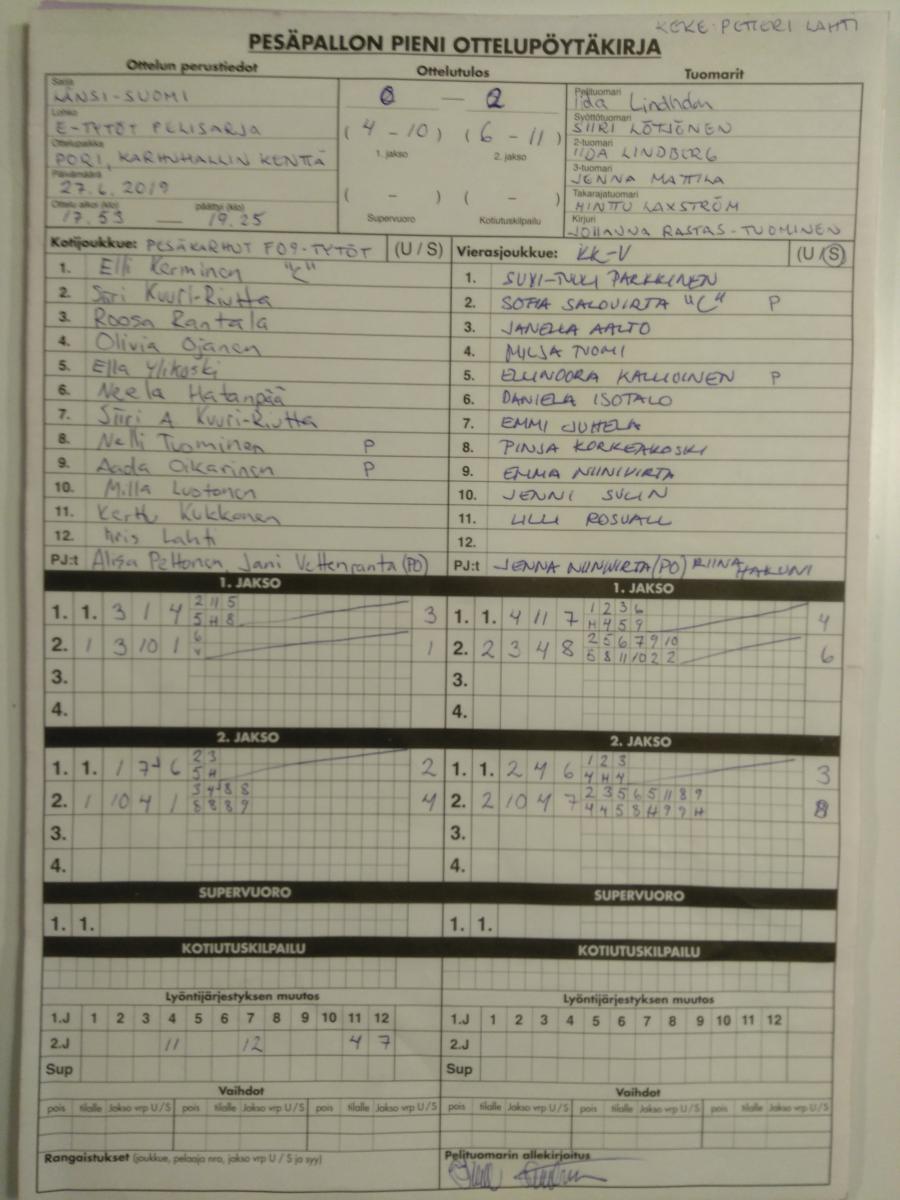 KEKE-PETTERI LAHTI
PESÄPALLON PIENI OTTELUPÖYTÄKIRJA
Ottelun perustiedot
Sarja
LÄNSI-SUOMI
Lohko
E-TYTÖT PELISARJA
Ottelupaikka
PORI, KARHUHALLIN KENTTÄ
Päivämäärä
27.6.2019
Ottelu alkoi (klo) päättyi (klo)
17.53 — 19.25
Ottelutulos
0 — 2
(4 - 10) (6 - 11)
1. jakso 2. jakso
( - ) ( - )
Supervuoro Kotiutuskilpailu
Tuomarit
Pelituomari
Iida
Syöttötuomari
SIIRI LÖTJÖNEN
2-tuomari
IIDA LINDBERG
3-tuomari
JENNA MATTILA
Takarajatuomari
MINTTU LAXSTRÖM
Kirjuri
JOHANNA RASTAS-TUOMINEN
Kotijoukkue: PESÄKARHUT F09-TYTÖT (U / S)
1. Elli Kerminen "C"
2. Siiri Kuuri-Riutta
3. Roosa Rantala
4. Olivia Ojanen
5. Ella Ylikoski
6. Neela Hatanpää
7. Siiri A Kuuri-Riutta
8. Nelli Tuominen P
9. Aada Oikarinen P
10. Milla Luotonen
11. Kerttu Kukkonen
12. Iiris Lahti
PJ:t Alisa Peltonen, Jani Vettenranta (PO)
Vierasjoukkue: KK-V (U / S)
1. SUVI-TUULI PARKKINEN
2. SOFIA SALOVIRTA "C" P
3. JANELLA AALTO
4. MILJA TUOMI
5. ELLINOORA KALLIOINEN P
6. DANIELA ISOTALO
7. EMMI JUHELA
8. PINJA KORKEAKOSKI
9. EMMA NIINIVIRTA
10. JENNI SULIN
11. LILLI ROSVALL
12.
PJ:t JENNA NIINIVIRTA (PO) RIINA HAKUNI
1. JAKSO
1. 1. 3 1 4 2 11 5 3
5 H 8
2. 1 3 10 1 6 1
4.
3.
4.
1. JAKSO
1. 1. 4 11 7 1 2 3 6 4
H 4 5 9
2. 2 3 4 8 2 5 6 7 9 10 6
5 8 11 10 2 2
3.
4.
2. JAKSO
1. 1. 1 7 6 2 3 2
5 H
2. 1 10 4 1 3 4 8 8 4
8 8 8 9
3.
4.
2. JAKSO
1. 1. 2 4 6 1 2 3 3
4 H 4
2. 2 10 4 7 2 3 5 6 5 11 8 9 8
4 4 5 8 H 9 9 H
3.
4.
SUPERVUORO
1. 1.
SUPERVUORO
1. 1.
KOTIUTUSKILPAILU
KOTIUTUSKILPAILU
Lyöntijärjestyksen muutos
1.J 1 2 3 4 5 6 7 8 9 10 11 12
2.J 11 12 4 7
Sup
Lyöntijärjestyksen muutos
1.J 1 2 3 4 5 6 7 8 9 10 11 12
2.J
Sup
Vaihdot
pois tilalle Jakso vrp U / S pois tilalle Jakso vrp U / S pois tilalle Jakso vrp U / S
Vaihdot
pois tilalle Jakso vrp U / S pois tilalle Jakso vrp U / S pois tilalle Jakso vrp U / S
Rangaistukset (joukkue, pelaaja nro, jakso vrp U / S ja syy)
Pelituomarin allekirjoitus